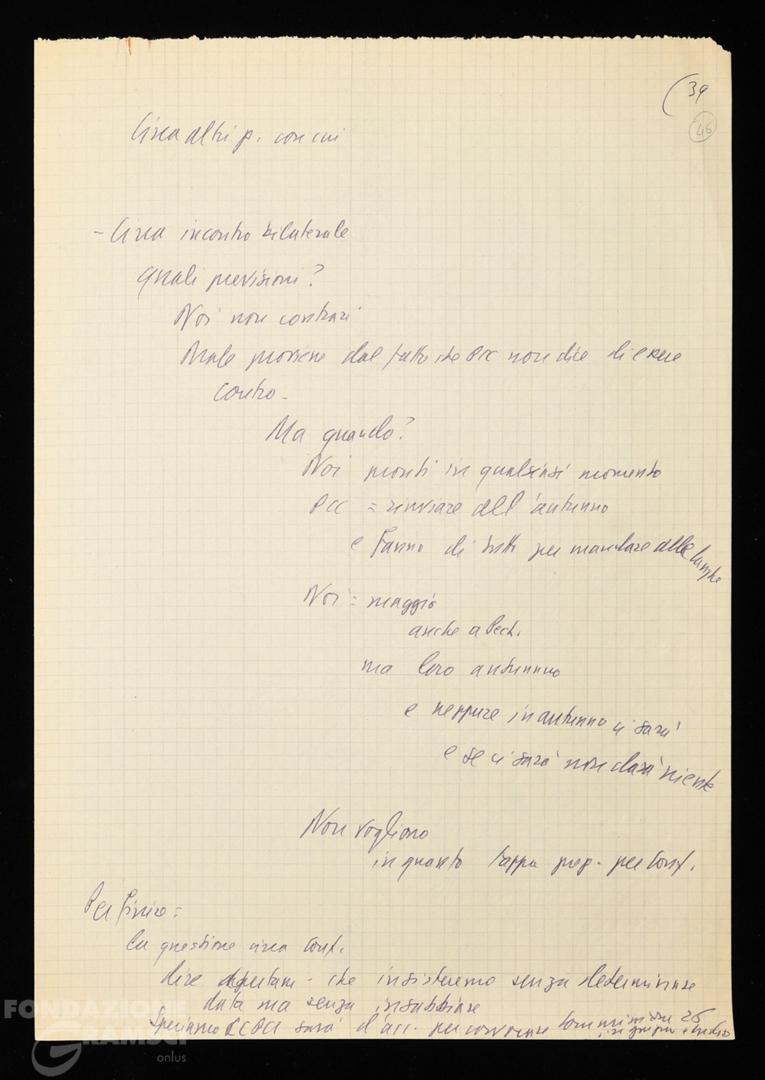 (39
46
Circa altri p. con cui
- Circa incontro bilaterale
Quali previsioni?
Noi non contrari
Male proviene dal fatto che PCC non dice di essere
contro -
Ma quando?
Noi pronti in qualsiasi momento
PCC = rinviare all'autunno
e fanno di tutto per mandare alle lunghe
Noi = maggio
anche a Pech.
ma loro autunno
e neppure in autunno ci sarà
e se ci sarà non darà niente
Non vogliono
in quanto tappa prep. per Conf.
Per finire =
La questione circa Conf.
dire che insisteremo senza determinare
data ma senza
Speriamo CC PCI sarà d'acc. per convocare Commissione 26
FONDAZIONE
GRAMSCI
onlus